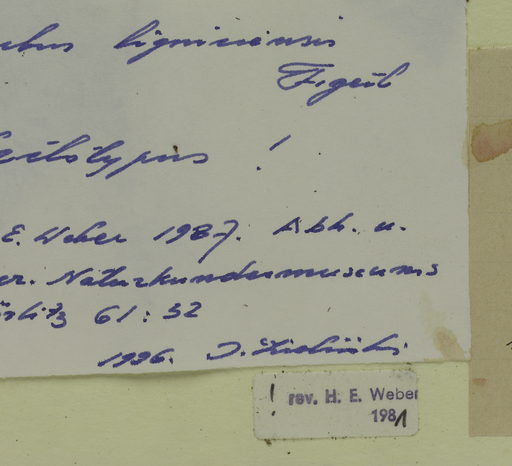 ubus lignicensis
Figert
! 
E. Weber 1987. Abh. u.
er. Naturkundemuseums
örlitz 61: 32
1996.
! rev. H. E. Weber
1981